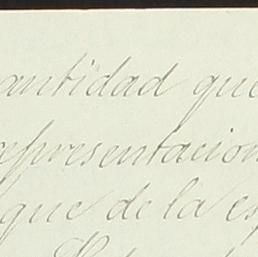 antidad que
apresentacion
que de la es